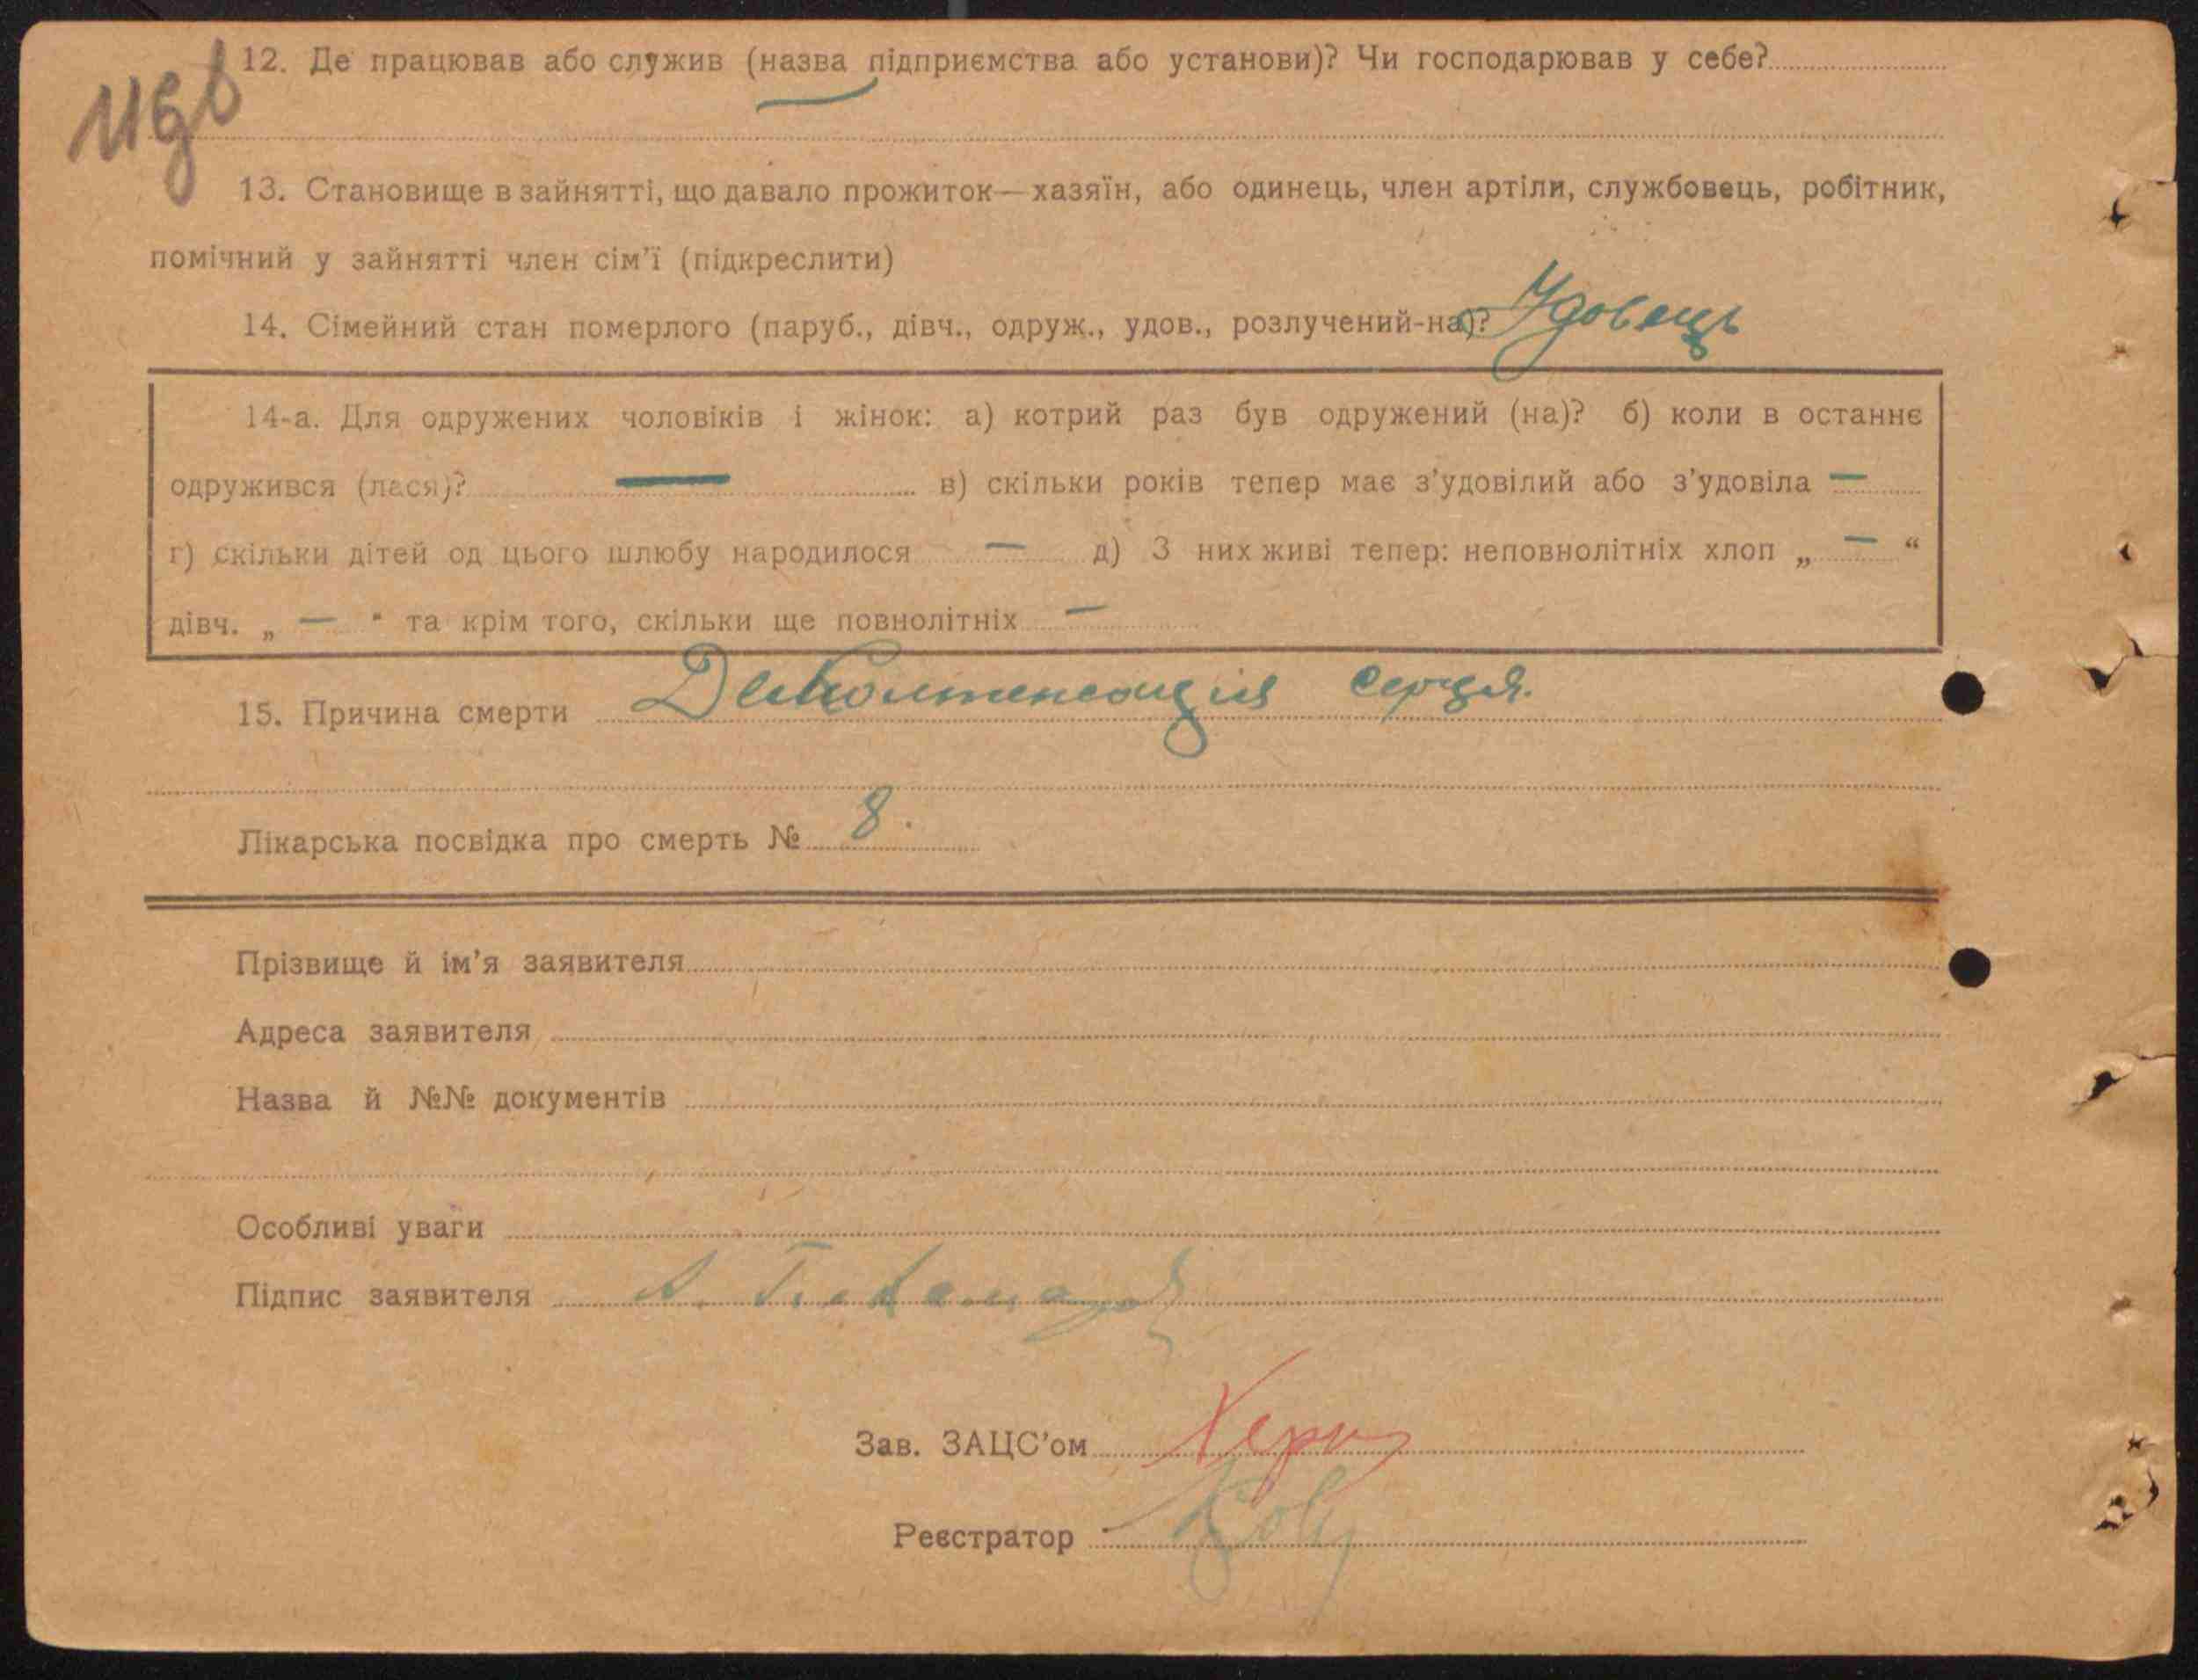 12. Де працював або служив (назва підприємства або установи)? Чи господарював у себе?
13. Становище в зайнятті, що давало прожиток—хазяїн, або одинець, член артіли, службовець, робітник,
помічний у зайнятті член сім'ї (підкреслити)
14. Сімейний стан померлого (паруб., дівч., одруж., удов., розлучений-на)? Удовець
14-а. Для одружених чоловіків і жінок: а) котрий раз був одружений (на)? б) коли в останнє
одружився (лася)? — в) скільки років тепер має з'удовілий або з'удовіла —
г) скільки дітей од цього шлюбу народилося — д) З них живі тепер: неповнолітніх хлоп „ — “
дівч. „ — “ та крім того, скільки ще повнолітніх —
15. Причина смерти Декомпенсация серця.
Лікарська посвідка про смерть № 8.
Прізвище й ім'я заявителя
Адреса заявителя
Назва й №№ документів
Особливі уваги
Підпис заявителя
Зав. ЗАЦС'ом
Реєстратор